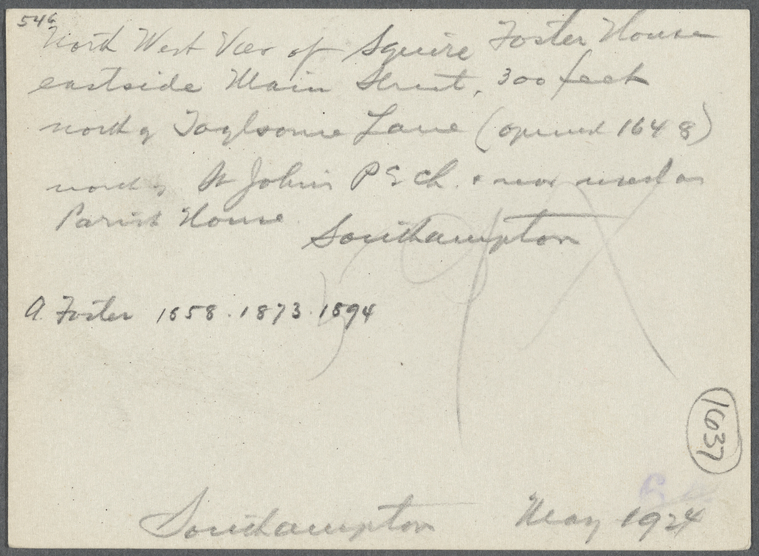 546
North West View of Squire Foster House
eastside Main Street, 300 feet
north of Toylsome Lane (opened 1648)
north of St John's P E Ch. & now used as
Parish House.
Southampton
A. Foster 1858. 1873. 1894
1637
6
Southampton May 1924